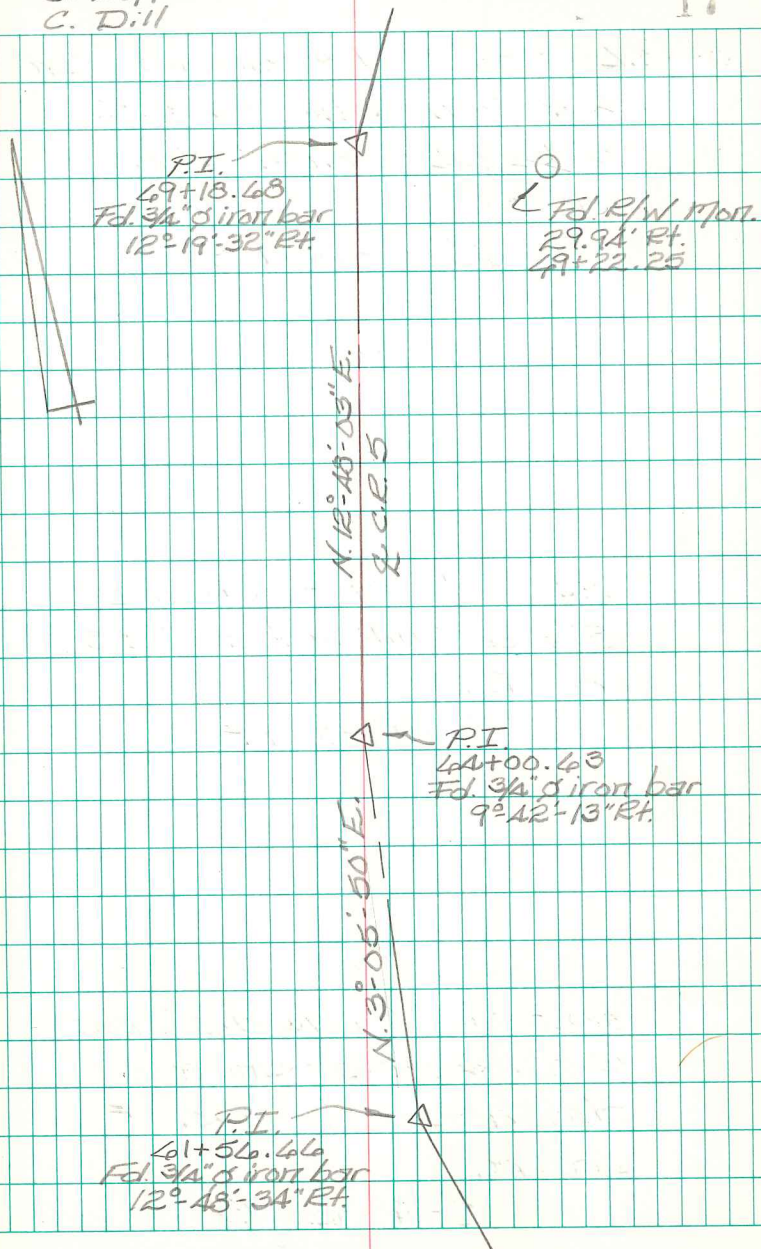 C. Dill
P.I.
49+18.48
Fd. 3/4"ø iron bar
12°-19'-32" Rt.
Fd. R/W Mon.
29.94' Rt.
49+22.25
N.12°-48'-03"E.
℄ C.R. 5
P.I.
44+00.43
Fd. 3/4"ø iron bar
9°-42'-13" Rt.
N.3°-05'-50"E.
P.I.
41+54.44
Fd. 3/4"ø iron bar
12°-48'-34" Rt.